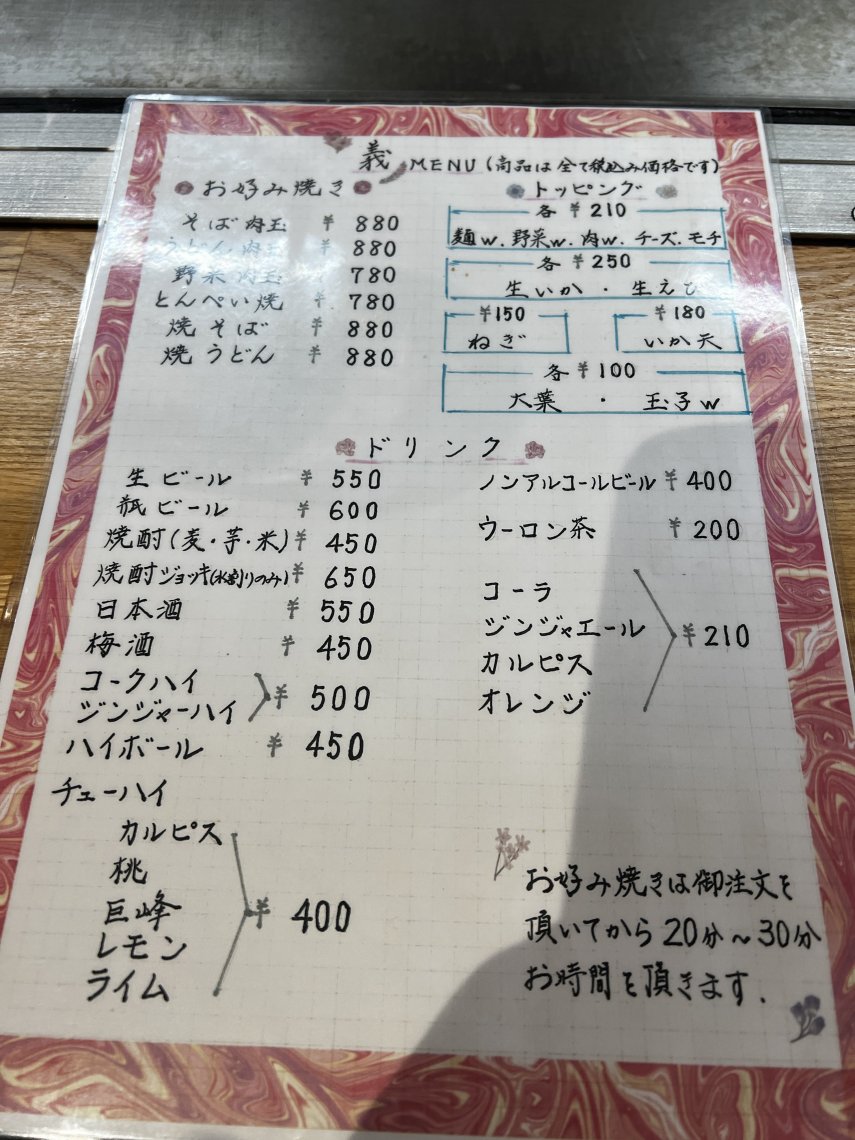 義 MENU (商品は全て税込み価格です)
お好み焼き
そば肉玉 ¥880
うどん肉玉 ¥880
野菜肉玉 ¥780
とんぺい焼 ¥780
焼そば ¥880
焼うどん ¥880
トッピング
各¥210
麺w.野菜w.肉w.チーズ.モチ
各¥250
生いか・生えび
¥150
ねぎ
¥180
いか天
各¥100
大葉・玉子w
ドリンク
生ビール ¥550
瓶ビール ¥600
焼酎(麦・芋・米) ¥450
焼酎ジョッキ(水割りのみ) ¥650
日本酒 ¥550
梅酒 ¥450
コークハイ
ジンジャーハイ ¥500
ハイボール ¥450
チューハイ
カルピス
桃
巨峰 ¥400
レモン
ライム
ノンアルコールビール ¥400
ウーロン茶 ¥200
コーラ
ジンジャエール ¥210
カルピス
オレンジ
お好み焼きは御注文を
頂いてから20分~30分
お時間を頂きます.